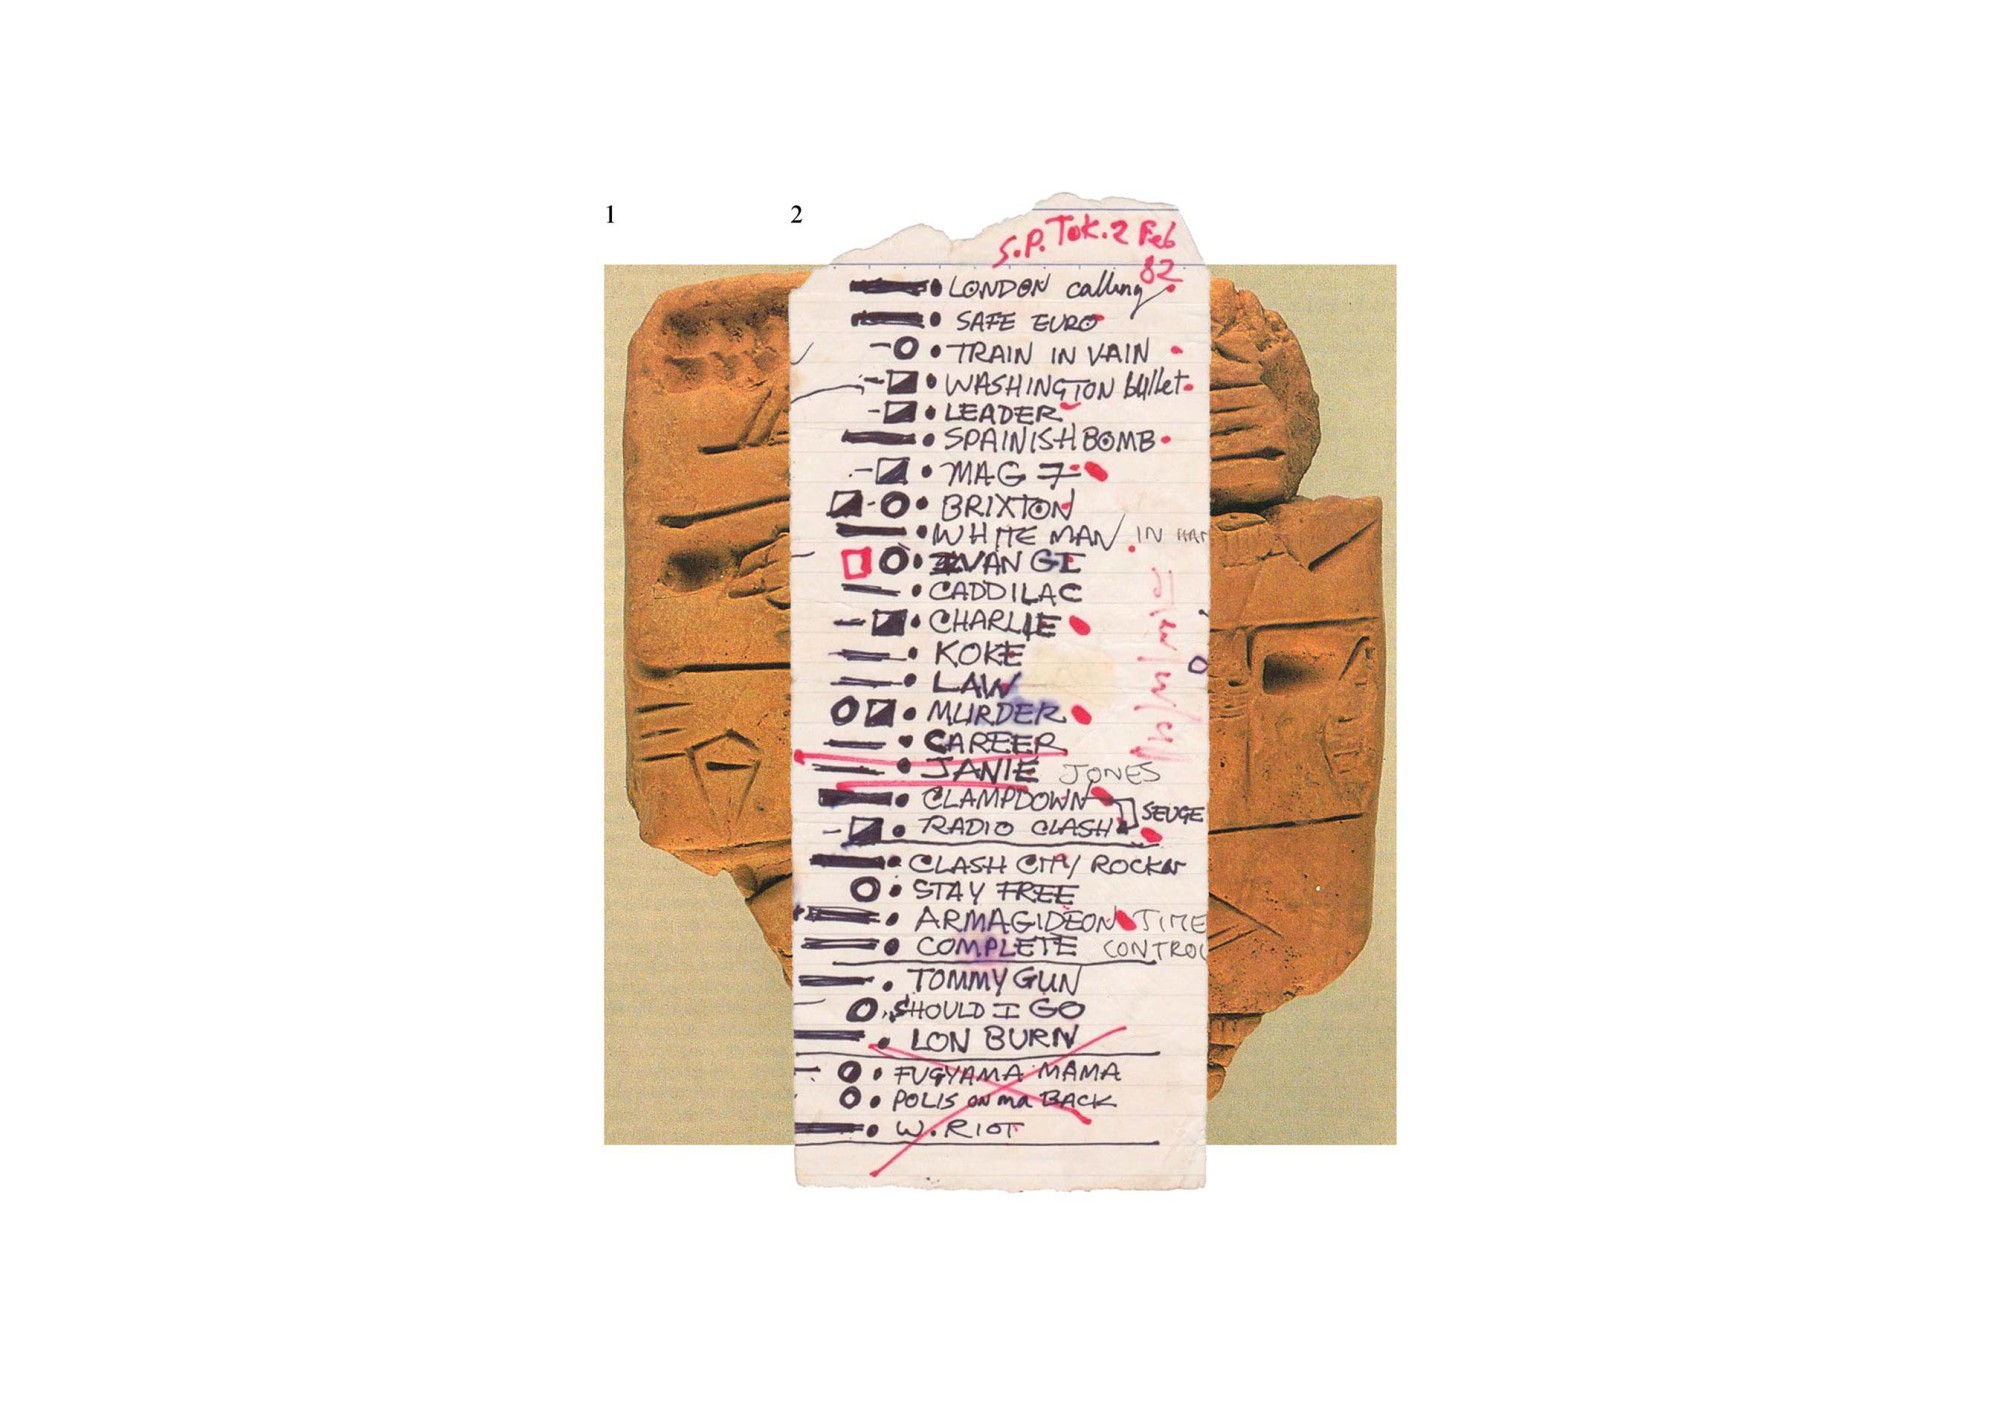 1
2
S.P. Tok. 2 Feb
82
LONDON calling
SAFE EURO
TRAIN IN VAIN
WASHINGTON bullet
LEADER
SPAINISH BOMB
MAG 7
BRIXTON
WHITE MAN IN HAM
VAN GI
CADDILAC
CHARLIE
KOKE
LAW
MURDER
CAREER
JANIE JONES
CLAMPDOWN
SEUGE
RADIO CLASH
CLASH CITY ROCKR
STAY FREE
ARMAGIDEON TIME
COMPLETE CONTROL
TOMMY GUN
SHOULD I GO
LON BURN
FUGYAMA MAMA
POLIS ON ma BACK
W. RIOT